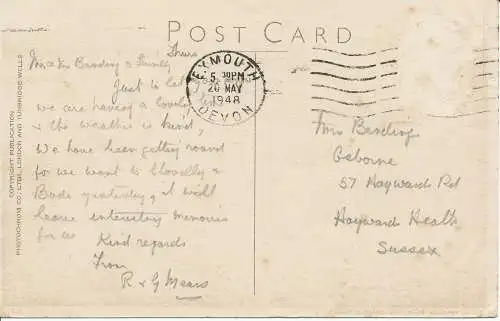 POST CARD
Thurs
Mr & Mrs Bending & Family
Just to let
we are having a lovely time
& the weather is kind,
We have been getting round
for we went to Clovelly &
Bude yesterday, it will
leave interesting memories
for us
Kind regards
From
R & G Mears
EXMOUTH
5.30PM
20 MAY
1948
DEVON
Mrs Bending
Osborne
57 Haywards Rd
Haywards Heath
Sussex
COPYRIGHT PUBLICATION
PHOTOCHROM CO., LTD., LONDON AND TUNBRIDGE WELLS